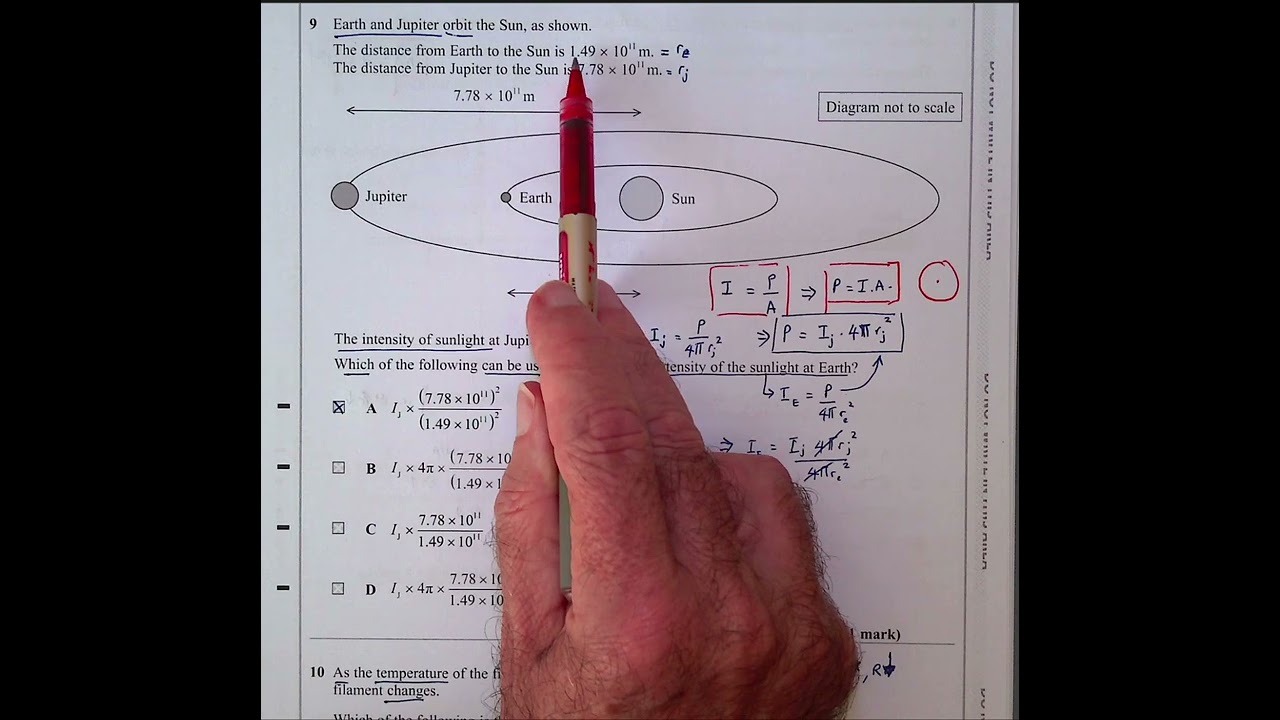 9 Earth and Jupiter orbit the Sun, as shown.
The distance from Earth to the Sun is 1.49 × 10¹¹ m. = rₑ
The distance from Jupiter to the Sun is 7.78 × 10¹¹ m. = rⱼ
7.78 × 10¹¹ m
Diagram not to scale
Jupiter
Earth
Sun
I = P/A ⇒ P = I.A.
The intensity of sunlight at
Iⱼ = P/4πrⱼ² ⇒ P = Iⱼ · 4πrⱼ²
Which of the following can be of the sunlight at Earth?
I_E = P/4πrₑ²
A I_J × (7.78 × 10¹¹)²/(1.49 × 10¹¹)²
⇒ = Iⱼ 4πrⱼ²/4πrₑ²
B I_J × 4π × (7.78 × 10
(1.49 × 1
C I_J × 7.78 × 10¹¹/1.49 × 10¹¹
D I_J × 4π × 7.78 × 10
1.49 × 10
mark)
10 As the temperature of the
, R↓
filament changes.
Which of the following is